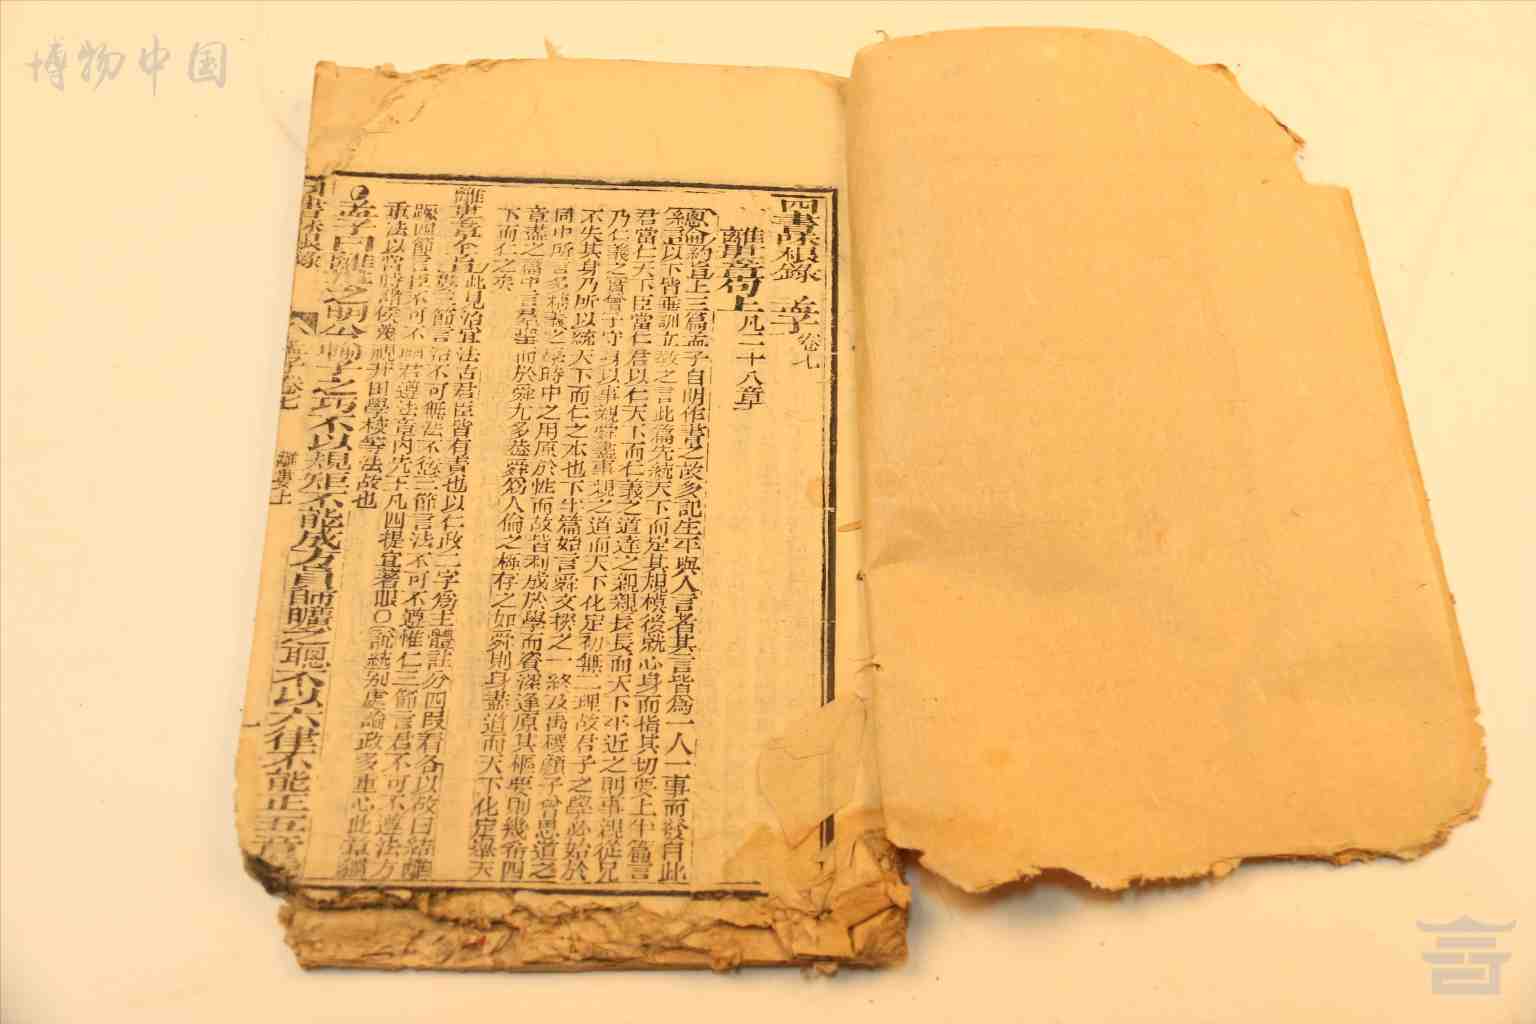 博物中国
四書味根錄 孟子卷七
離婁章句上凡二十八章
總論約旨上三篇孟子自明作書之故多記生平與人言者其言皆為一人一事而發自此
篇以下皆垂訓立教之言此篇先統天下而定其規模後就心身而指其切要上半篇言
君當仁天下臣當仁君以仁天下而仁義之道達之親親長長而天下平近之則事親從兄
乃仁義之實曾子守身以事親當盡事親之道而天下化定初無二理故君子之學必始於
不失其身乃所以統天下而仁之本也下半篇始言舜文揆之一終及禹稷顏子曾思道之
同中所言多積義之學時中之用原於性而故皆利成於學而資深逢原其樞要則幾希四
章盡之篇中言羣聖而於舜尤多蓋舜為人倫之極存之如舜則身盡道而天下化定舉天
下而仁之矣
離婁章全旨此見治宜法古君臣皆有責也以仁政二字為主體註分四段看各以故曰結
首三節言治不可無法不愆三節言法不可不遵惟仁三節言君不可不遵法方
蹶四節言臣不可不 君遵法章內先王凡四提宜著眼〇說統別處論政多重心此章
重法以當時諸侯蔑視井田學校等法故也
孟子曰離婁之明公輸子之巧不以規矩不能成方員師曠之聰不以六律不能正五音
四書味根錄 孟子卷七 離婁上